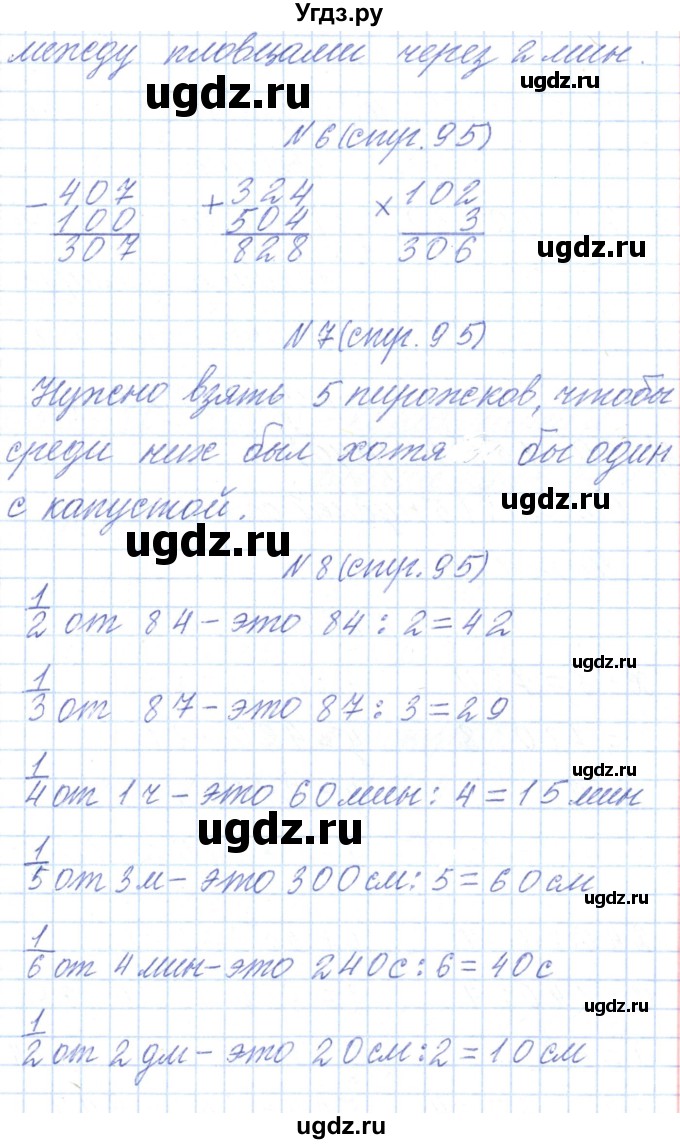 Угдз.ру
между пловцами через 2 мин.
ugdz.ru
№6 (стр. 95)
- 407 + 324 × 102
100 504 3
307 828 306
ugdz.ru
№7 (стр. 95)
ugdz.ru
Нужно взять 5 пирожков, чтобы
среди них был хотя бы один
ugdz.ru
с капустой.
ugdz.ru
№8 (стр. 95)
1/2 от 84 - это 84 : 2 = 42
ugdz.ru
1/3 от 87 - это 87 : 3 = 29
ugdz.ru
1/4 от 1 ч - это 60 мин : 4 = 15 мин
ugdz.ru
1/5 от 3 м - это 300 см : 5 = 60 см
ugdz.ru
1/6 от 4 мин - это 240 с : 6 = 40 с
ugdz.ru
1/2 от 2 дм - это 20 см : 2 = 10 см
ugdz.ru
ugdz.ru